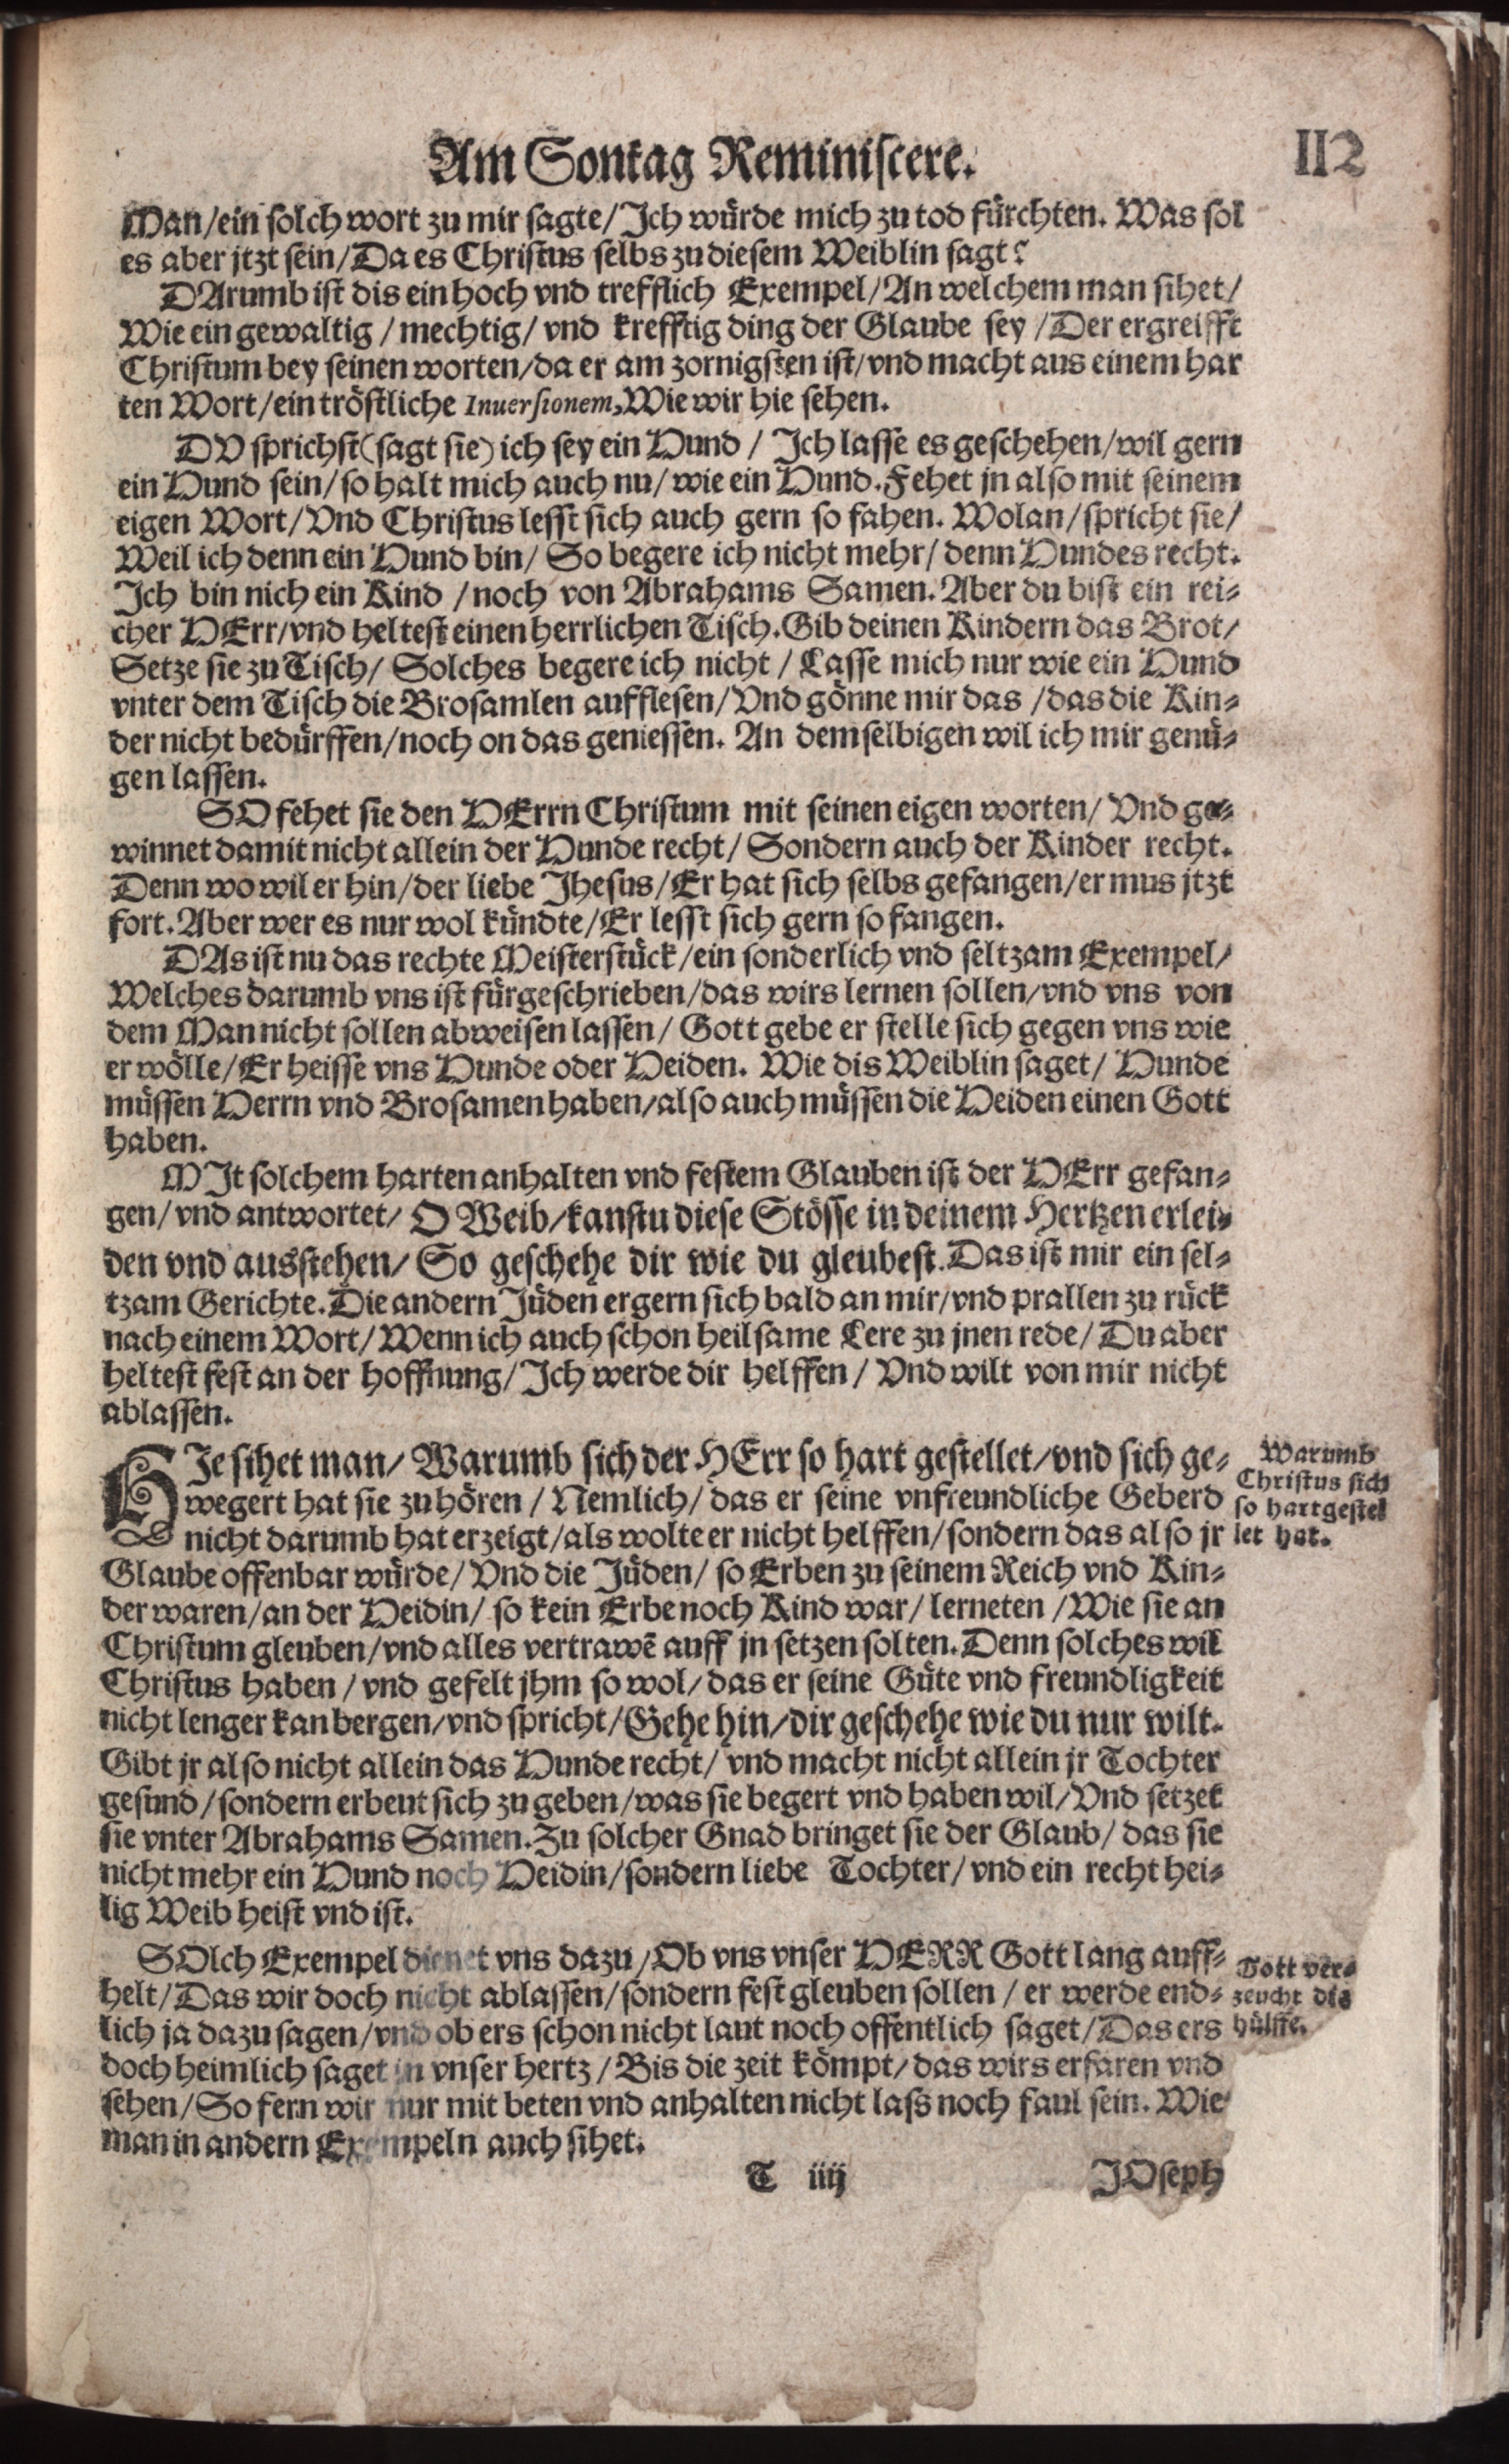 Am Sontag Reminiscere.
112
Man/ein solch wort zu mir sagte/Ich würde mich zu tod fürchten. Was sol
es aber jtzt sein/Da es Christus selbs zu diesem Weiblin sagt?
DArumb ist dis ein hoch vnd trefflich Exempel/An welchem man sihet/
Wie ein gewaltig/mechtig/vnd krefftig ding der Glaube sey/Der ergreifft
Christum bey seinen worten/da er am zornigsten ist/vnd macht aus einem har
ten Wort/ein tröstliche Inuersionem, Wie wir hie sehen.
DV sprichst (sagt sie) ich sey ein Hund/Ich lasse es geschehen/wil gern
ein Hund sein/so halt mich auch nu/wie ein Hund. Fehet jn also mit seinem
eigen Wort/Vnd Christus lesst sich auch gern so fahen. Wolan/spricht sie/
Weil ich denn ein Hund bin/So begere ich nicht mehr/denn Hundes recht.
Ich bin nich ein Kind/noch von Abrahams Samen. Aber du bist ein rei-
cher HErr/vnd heltest einen herrlichen Tisch. Gib deinen Kindern das Brot/
Setze sie zu Tisch/Solches begere ich nicht/Lasse mich nur wie ein Hund
vnter dem Tisch die Brosamlen aufflesen/Vnd gönne mir das/das die Kin-
der nicht bedürffen/noch on das geniessen. An demselbigen wil ich mir genü-
gen lassen.
SO fehet sie den HErrn Christum mit seinen eigen worten/Vnd ge-
winnet damit nicht allein der Hunde recht/Sondern auch der Kinder recht.
Denn wo wil er hin/der liebe Jhesus/Er hat sich selbs gefangen/er mus jtzt
fort. Aber wer es nur wol kündte/Er lesst sich gern so fangen.
DAs ist nu das rechte Meisterstück/ein sonderlich vnd seltzam Exempel/
Welches darumb vns ist fürgeschrieben/das wirs lernen sollen/vnd vns von
dem Man nicht sollen abweisen lassen/Gott gebe er stelle sich gegen vns wie
er wölle/Er heisse vns Hunde oder Heiden. Wie dis Weiblin saget/Hunde
müssen Herrn vnd Brosamen haben/also auch müssen die Heiden einen Gott
haben.
MIt solchem harten anhalten vnd festem Glauben ist der HErr gefan-
gen/vnd antwortet/O Weib/kanstu diese Stösse in deinem Hertzen erlei-
den vnd ausstehen/So geschehe dir wie du gleubest. Das ist mir ein sel-
tzam Gerichte. Die andern Jüden ergern sich bald an mir/vnd prallen zu rück
nach einem Wort/Wenn ich auch schon heilsame Lere zu jnen rede/Du aber
heltest fest an der hoffnung/Ich werde dir helffen/Vnd wilt von mir nicht
ablassen.
HIe sihet man/Warumb sich der HErr so hart gestellet/vnd sich ge-
wegert hat sie zu hören/Nemlich/das er seine vnfreundliche Geberd
nicht darumb hat erzeigt/als wolte er nicht helffen/sondern das also jr
Glaube offenbar würde/Vnd die Jüden/so Erben zu seinem Reich vnd Kin-
der waren/an der Heidin/so kein Erbe noch Kind war/lerneten/Wie sie an
Christum gleuben/vnd alles vertrawē auff jn setzen solten. Denn solches wil
Christus haben/vnd gefelt jhm so wol/das er seine Güte vnd freundligkeit
nicht lenger kan bergen/vnd spricht/Gehe hin/dir geschehe wie du nur wilt.
Gibt jr also nicht allein das Hunde recht/vnd macht nicht allein jr Tochter
gesund/sondern erbeut sich zu geben/was sie begert vnd haben wil/Vnd setzet
sie vnter Abrahams Samen. Zu solcher Gnad bringet sie der Glaub/das sie
nicht mehr ein Hund noch Heidin/sondern liebe Tochter/vnd ein recht hei-
lig Weib heist vnd ist.
Warumb
Christus sich
so hart gestel
let hat.
SOlch Exempel dienet vns dazu/Ob vns vnser HERR Gott lang auff-
helt/Das wir doch nicht ablassen/sondern fest gleuben sollen/er werde end-
lich ja dazu sagen/vnd ob ers schon nicht laut noch offentlich saget/Das ers
doch heimlich saget in vnser hertz/Bis die zeit kömpt/das wirs erfaren vnd
sehen/So fern wir nur mit beten vnd anhalten nicht lass noch faul sein. Wie
man in andern Exempeln auch sihet.
Gott ver-
zeucht die
hülffe.
T iiij
JOseph